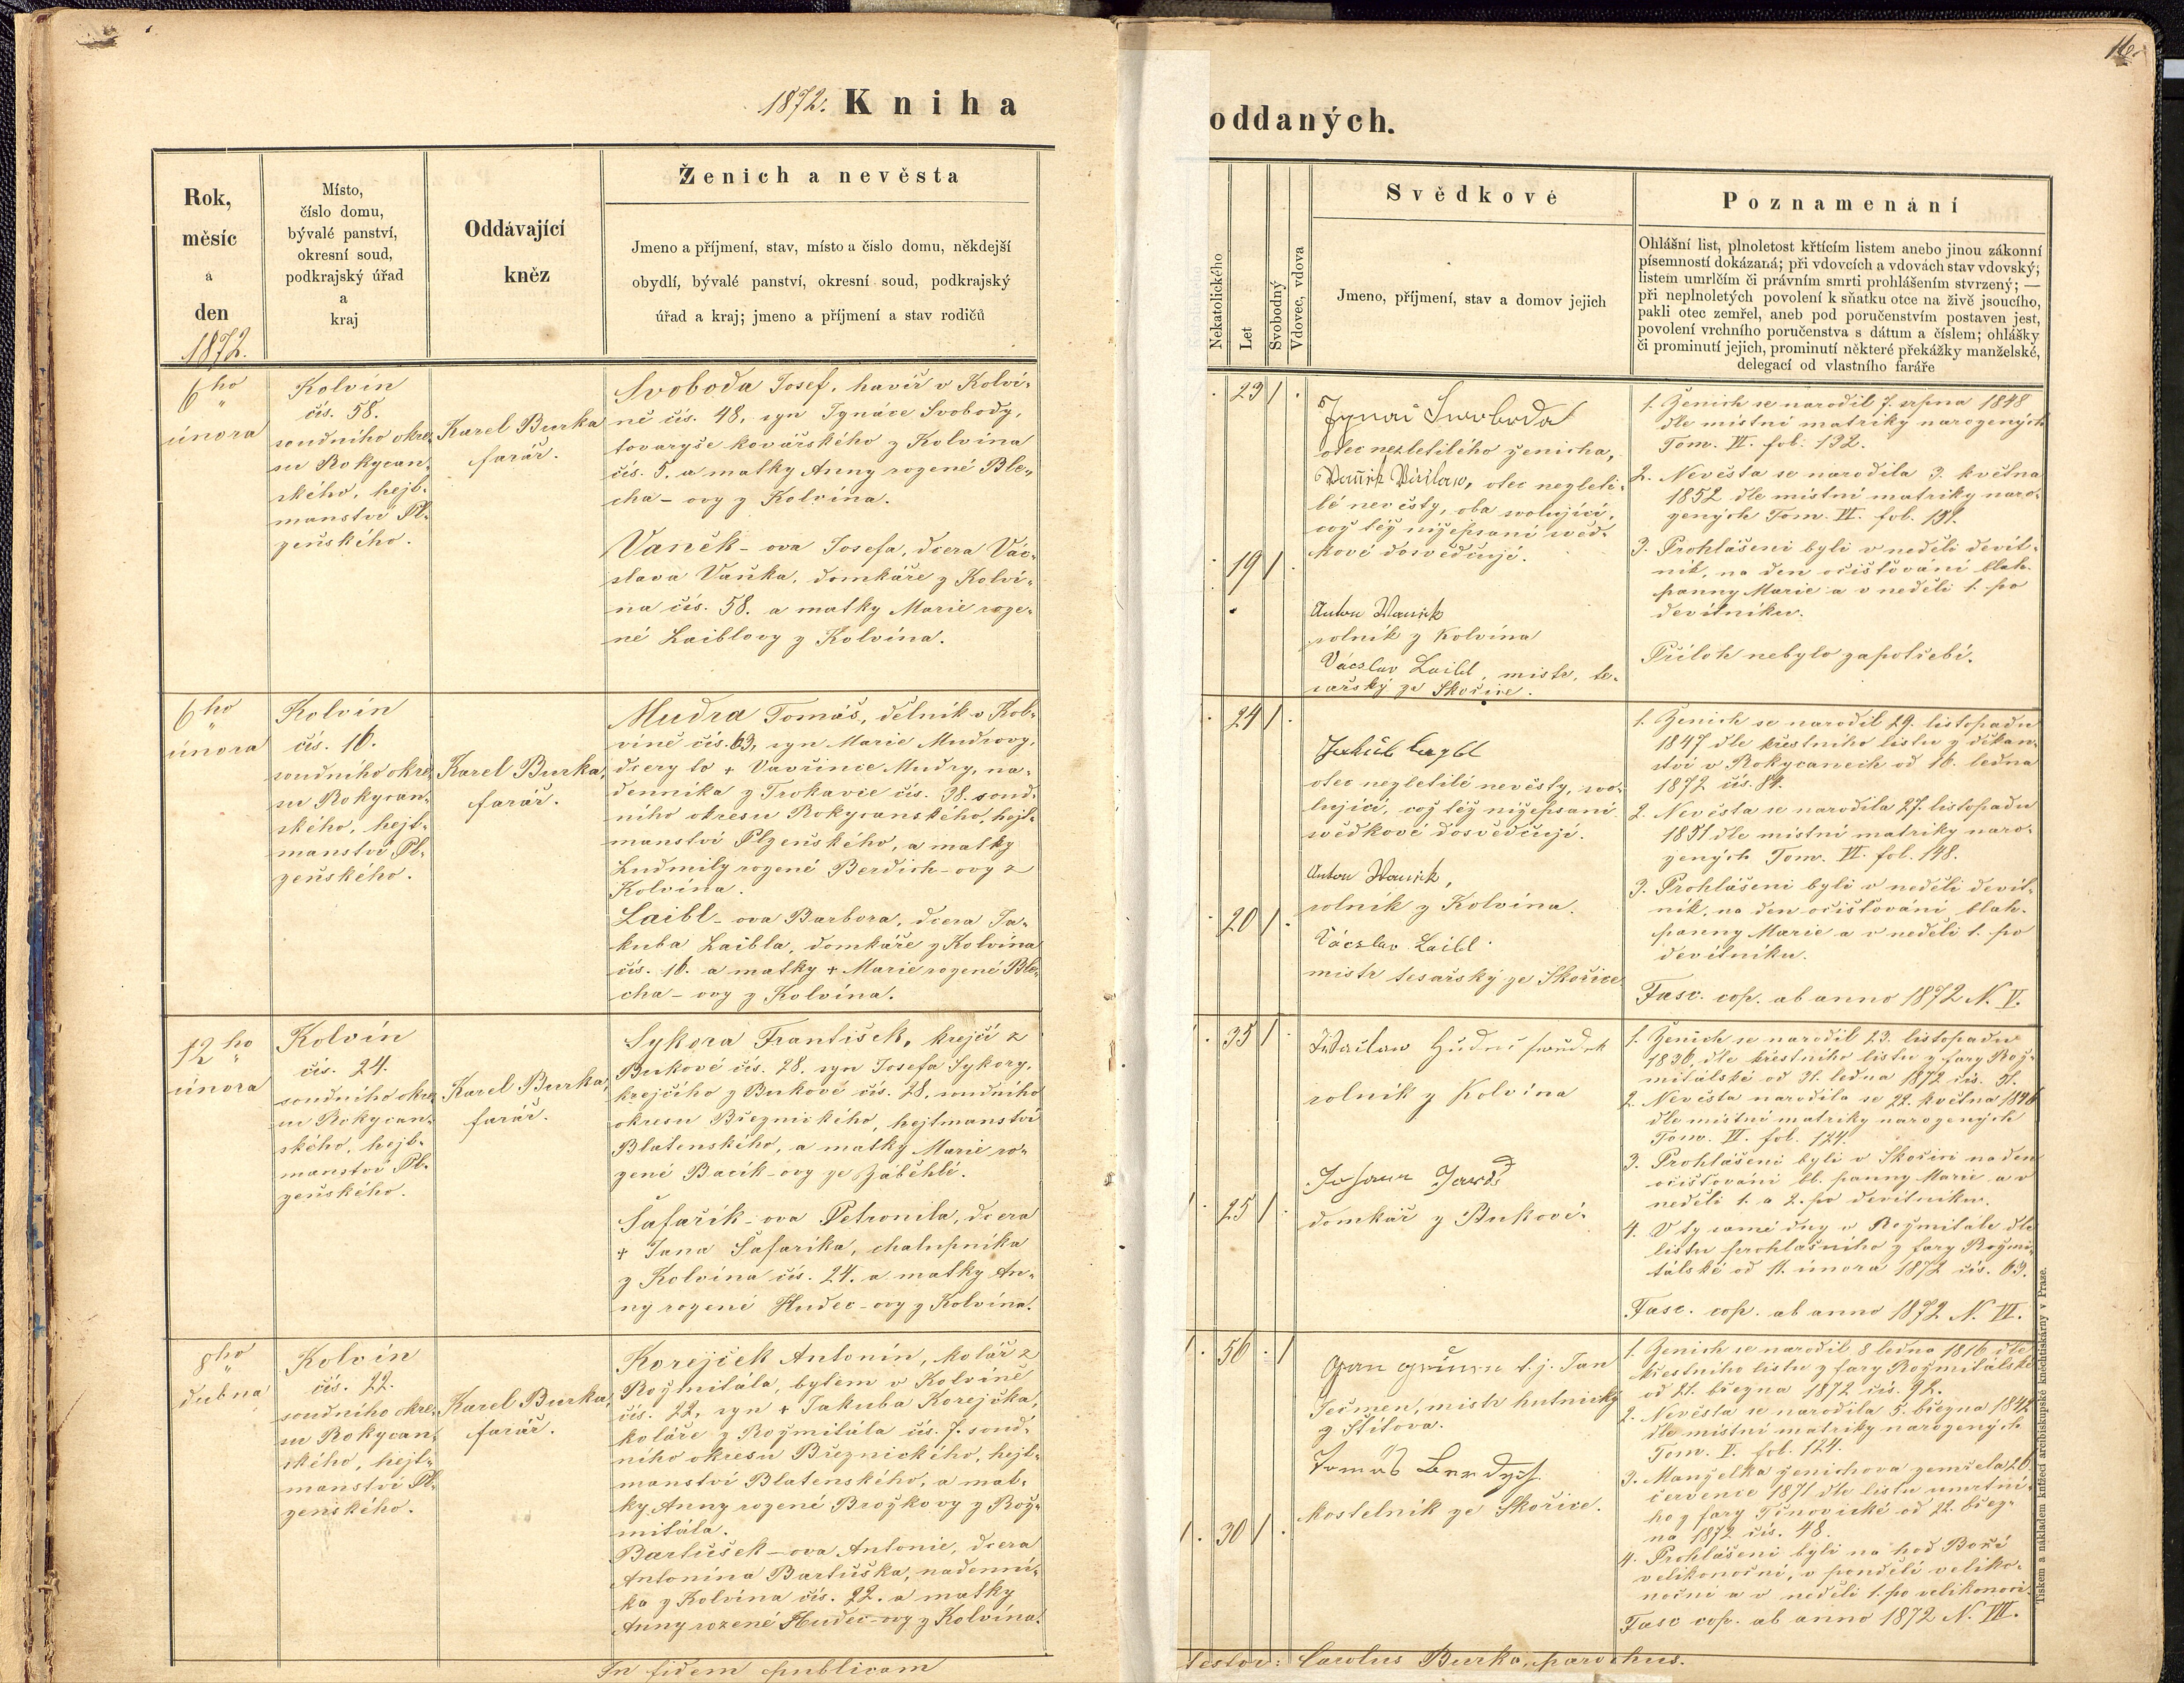 16.
1872. Kniha
oddaných.
Rok,
měsíc
a
den
1872.
Místo,
číslo domu,
bývalé panství,
okresní soud,
podkrajský úřad
a
kraj
Oddávající
kněz
Ženich a nevěsta
Jmeno a příjmení, stav, místo a číslo domu, někdejší
obydlí, bývalé panství, okresní soud, podkrajský
úřad a kraj; jmeno a příjmení a stav rodičů
Nekatolického
Let
Svobodný
Vdovec, vdova
Svědkové
Jmeno, příjmení, stav a domov jejich
Poznamenání
Ohlášní list, plnoletost křtícím listem anebo jinou zákonní
písemností dokázaná; při vdovcích a vdovách stav vdovský;
listem umrlčím či právním smrti prohlášením stvrzený; —
při neplnoletých povolení k sňatku otce na živě jsoucího,
pakli otec zemřel, aneb pod poručenstvím postaven jest,
povolení vrchního poručenstva s dátum a číslem; ohlášky
či prominutí jejich, prominutí některé překážky manželské,
delegací od vlastního faráře
6ho
února
Kolvín
čís. 58.
soudního okre-
su Rokycan-
ského, hejt-
manství Pl-
zeňského.
Karel Burka
farář.
Svoboda Josef, havíř v Kolví-
ně čís. 48, syn Ignáce Svobody,
tovaryše kovářského z Kolvína
čís. 5. a matky Anny rozené Ble-
cha-ovy z Kolvína.
Vaněk-ova Josefa, dcera Vác-
slava Vaňka, domkáře z Kolví-
na čís. 58. a matky Marie roze-
né Laiblovy z Kolvína.
23 1
19 1
Ignac Swoboda
otec nezletilého ženicha,
otec nezleti-
lé nevěsty, oba svolující,
což též nížepsaní svěd-
kové dosvědčují.
Anton Wanick
rolník z Kolvína
Vácslav Laibl, mistr te-
sařský ze Skořice.
1. Ženich se narodil 7. srpna 1848
dle místní matriky narozených
Tom. VI. fol. 132.
2. Nevěsta se narodila 3. května
1852 dle místní matriky naro-
zených Tom. VI. fol. 151.
3. Prohlášeni byli v neděli devít-
ník, na den očišťování blah.
panny Marie a v neděli 1. po
devítníku.
Příloh nebylo zapotřebí.
6ho
února
Kolvín
čís. 16.
soudního okre-
su Rokycan-
ského, hejt-
manství Pl-
zeňského.
Karel Burka,
farář.
Mudra Tomáš, dělník v Kol-
víně čís. 63, syn Marie Mudrovy,
dcery to + Vavřince Mudry, na-
denníka z Trokavce čís. 38. soud-
ního okresu Rokycanského, hejt-
manství Plzeňského, a matky
Ludmily rozené Berdich-ovy z
Kolvína.
Laibl-ova Barbora, dcera Ja-
kuba Laibla, domkáře z Kolvína
čís. 16. a matky + Marie rozené Ble-
cha-ovy z Kolvína.
24 1
20 1
Jakub
otec nezletilé nevěsty, svo-
lující, což též nížepsaní
svědkové dosvědčují.
Anton Wanick,
rolník z Kolvína.
Vácslav Laibl
mistr tesařský ze Skořice
1. Ženich se narodil 29. listopadu
1847 dle křestního listu z děkan-
ství v Rokycanech od 16. ledna
1872 čís. 84.
2. Nevěsta se narodila 27. listopadu
1851 dle místní matriky naro-
zených Tom. VI. fol. 148.
3. Prohlášeni byli v neděli devít-
ník, na den očišťování blah.
panny Marie a v neděli 1. po
devítníku.
Fasc. cop. ab anno 1872 N. V.
12ho
února
Kolvín
čís. 24.
soudního okre-
su Rokycan-
ského, hejt-
manství Pl-
zeňského.
Karel Burka,
farář.
Sykora František, krejčí z
Bukové čís. 28. syn Josefa Sykory,
krejčího z Bukové čís. 28, soudního
okresu Březnického, hejtmanství
Blatenského, a matky Marie ro-
zené Bacík-ovy ze Záběhlé.
Šafařík-ova Petronila, dcera
+ Jana Šafaříka, chalupníka
z Kolvína čís. 24. a matky An-
ny rozené Hudec-ovy z Kolvína.
35 1
25 1
Waclaw
rolník z Kolvína
Johann
domkář z Bukové.
1. Ženich se narodil 23. listopadu
1836, dle křestního listu z fary Rož-
mitálské od 31. ledna 1872 čís. 31.
2. Nevěsta narodila se 22. května 1846
dle místní matriky narozených
Tom. VI. fol. 124.
3. Prohlášeni byli v Skořici na den
očišťování bl. panny Marie a v
neděli 1. a 2. po devítníku.
4. V ty samé dny v Rožmitále dle
listu prohlášního z fary Rožmi-
tálské od 11. února 1872 čís. 63.
Fasc. cop. ab anno 1872 N. VI.
8ho
dubna
Kolvín
čís. 22.
soudního okre-
su Rokycan-
ského, hejt-
manství Pl-
zenského.
Karel Burka,
farář.
Korejček Antonín, kolář z
Rožmitála, bytem v Kolvíně
čís. 22, syn + Jakuba Korejčka,
koláře z Rožmitála čís. 7. soud-
ního okresu Březnického, hejt-
manství Blatenského, a mat-
ky Anny rozené Brožkovy z Rož-
mitála.
Bartůšek-ova Antonie, dcera
Antonína Bartůška, nadenní-
ka z Kolvína čís. 22. a matky
Anny rozené Hudec-ovy z Kolvína.
56 1
30 1
t. j. Jan
Ječmen, mistr hutnický
z Štítova.
Tomáš Berdych
kostelník ze Skořice.
1. Ženich se narodil 8 ledna 1816 dle
křestního listu z fary Rožmitálské
od 21. března 1872 čís. 92.
2. Nevěsta se narodila 5. března 1842
dle místní matriky narozených
Tom. V. fol. 124.
3. Manželka ženichova zemřela 26.
července 1871 dle listu úmrtní-
ho z fary Těnovické od 22. břez-
na 1872 čís. 48.
4. Prohlášeni byli na hod Boží
velikonoční, v pondělí veliko-
noční a v neděli 1. po velikonoci.
Fasc cop. ab anno 1872 N. VII.
In fidem publicam
testor: Carolus Burka, parochus.
Tiskem a nákladem knížecí arcibiskupské knihtiskárny v Praze.